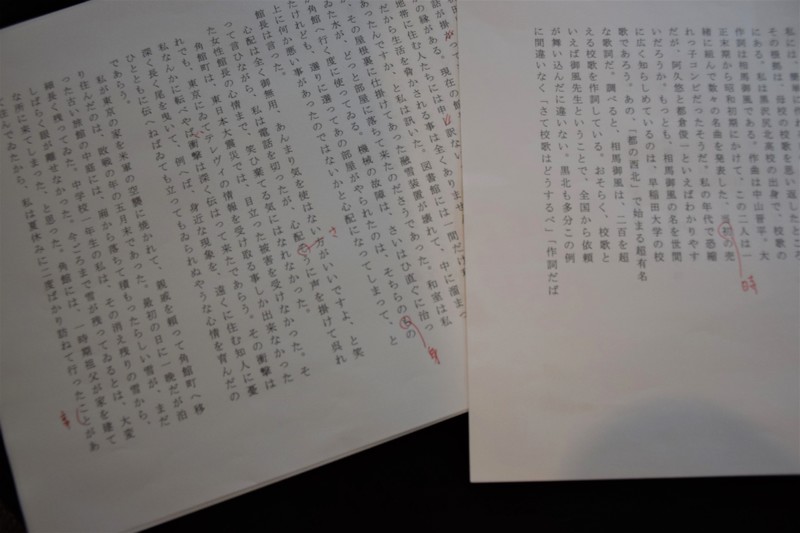 その機縁は、母校の校歌を思い返したところ
にある。私は黒沢尻北高校の出身で、校歌の
作詞は相馬御風である。作曲は中山晋平。大
正末期から昭和初期にかけて、この二人は一
緒に組んで数々の名曲を発表した。当初の売
れっ子コンビだったそうだ。私の年代で恐縮
だが、阿久悠と都倉俊一といえばわかりやす
いだろうか。もっとも、相馬御風の名を世間
に広く知らしめているのは、早稲田大学の校
歌であろう。あの、「都の西北」で始まる超有名
な歌詞だ。調べると、相馬御風は、二百を超
える校歌を作詞している。おそらく、校歌と
いえば御風先生ということで、全国から依頼
が舞い込んだに違いない。黒北も多分この例
に間違いなく「さて校歌はどうするべ」「作詞だば
時
地帯に住む人たちには申し訳ない
だから生活を脅かされる事は全くありません
あったんですか、と私は訊いた。図書館には一間だけ
、その屋根裏に仕掛けてあった融雪装置が壊れて、中に溜まつ
ゐた水が、どっと部屋に落ちて来たのださうであった。和室は私
が角館へ行く度に使ってゐる。機械の故障は、さいはひ直ぐに治っ
たけれども、選りに選つてあの部屋がやられたのは、そちらの
の
身
上に何か悪い事があったのではないかと心配になってしまって、と
館長は言った。
心配は全く御無用、あんまり気を使はない方がいいですよ、と笑
って言ひながら、私は電話を切ったが、心配
に声を掛けて呉れ
た女性館長の心情まで、笑ひ棄てる気にはなれなかった。
角館町は、東日本大震災では、目立った被害を受けなかった。そ
れでも、東京にゐてテレヴィの情報を受け取る事しか出来なかった
私なんかに較べやば、衝撃は深く伝はって来たであらう。その衝撃は
深く長く尾を曳いて、例へば、身近な現象を、遠くに住む知人に憂
ひとともに伝へねばゐても立ってもゐられぬやうな心情を育んだの
であらう。
私が東京の家を米軍の空襲に焼かれて、親戚を頼って角館町へ移
り住んだのは、敗戦の年の五月末であった。最初の日に一晩だが泊
った古い旅館の中庭には、廂から落ちて積もったらしい雪が、まだ
細長く残ってゐた。中学校一年生の私は、その消え残りの雪から、
しばらく眼が離せなかった。今ごろまで雪が残ってゐるとは、大変
な所に来てしまった、と思った。角館には、一時期祖父が家を建て
て住んでゐたから、私は夏休みに二度ばかり訪ねて行ったことがあ